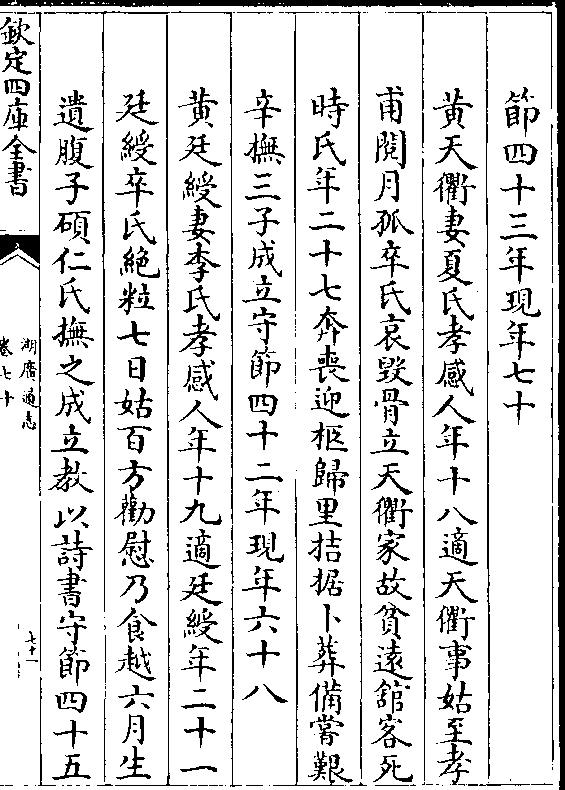 節四十三年現年七十
黄天衢妻夏氏孝感人年十八適天衢事姑至孝
甫閱月孤卒氏哀毀骨立天衢家故貧遠舘客死
時氏年二十七奔喪迎柩歸里拮据卜葬備嘗艱
辛撫三子成立守節四十二年現年六十八
黄廷綬妻李氏孝感人年十九適廷綬年二十一
廷綬卒氏絶粒七日姑百方勸慰乃食越六月生
遺腹子碩仁氏撫之成立教以詩書守節四十五
欽定四庫全書
湖廣通志
卷七十
七十一